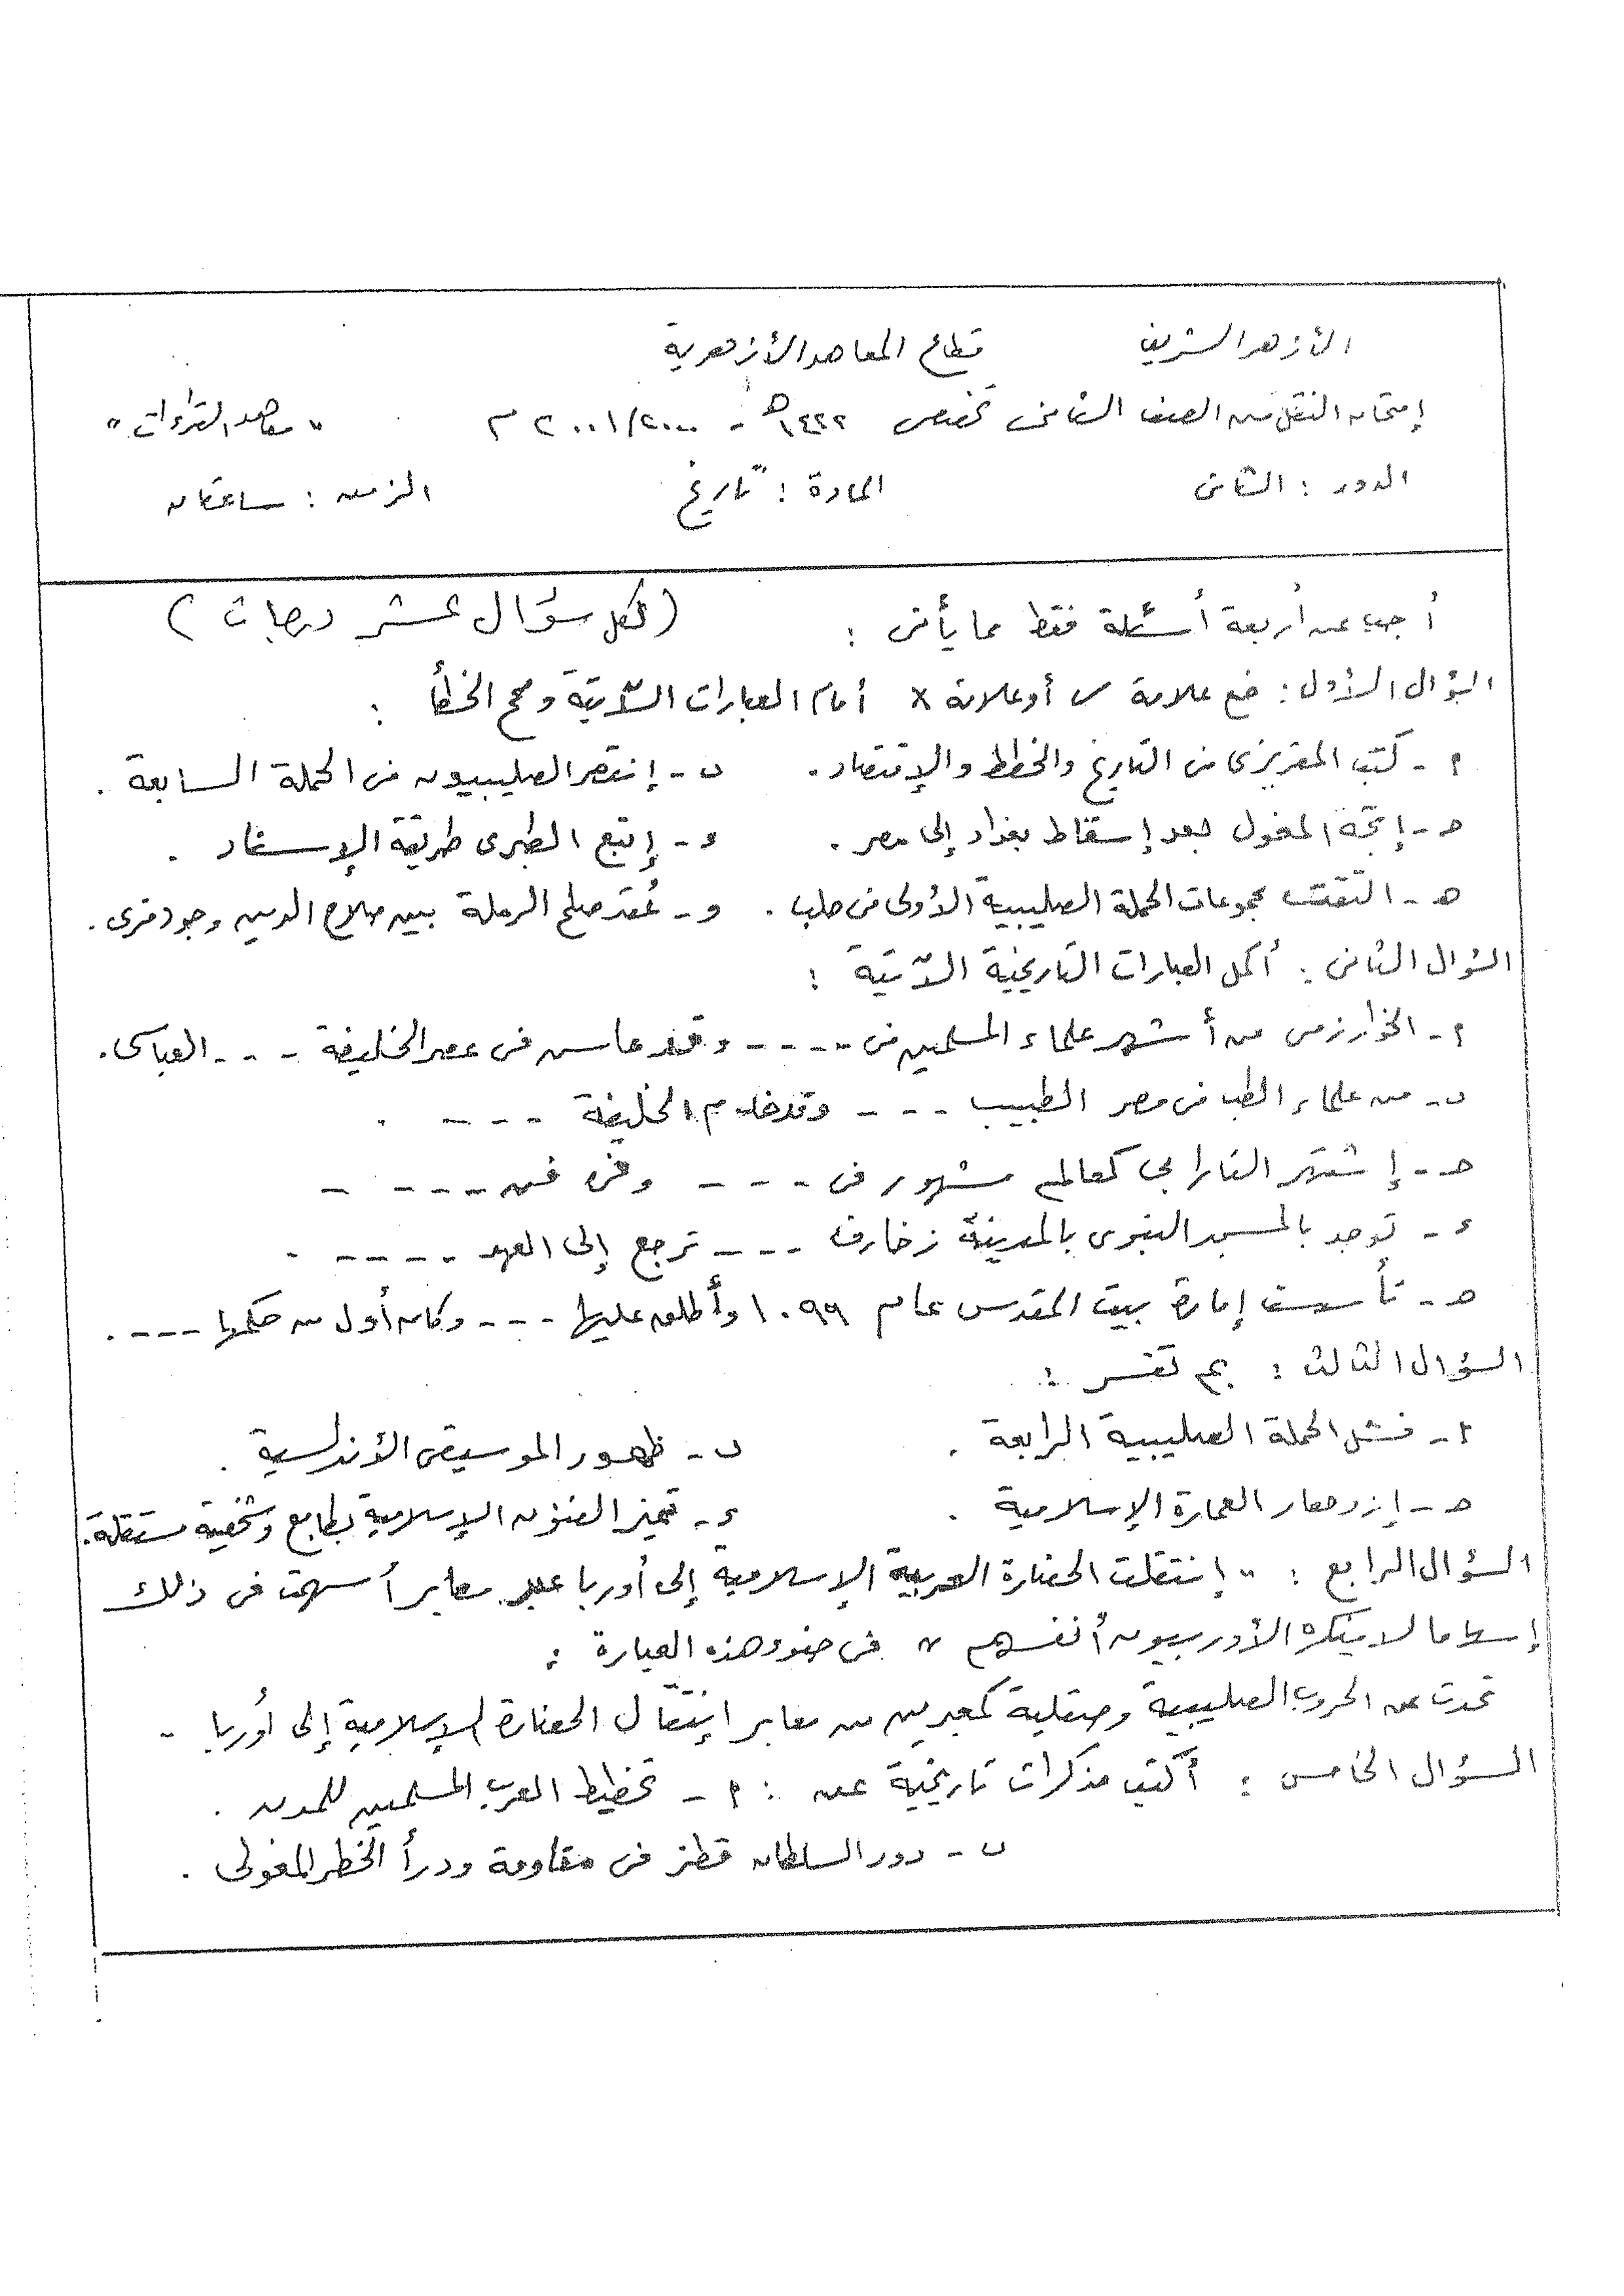 الأزهر الشريف قطاع المعاهد الأزهرية
إمتحان النقل من الصف الثانى تخصص ١٤٢٢هـ - ٢٠٠١/٢٠٠٠ م "معاهد القراءات"
الدور : الثانى المادة : تاريخ الزمن : ساعتان
أجب عن أربعة أسئلة فقط مما يأتى : (لكل سؤال عشر درجات)
السؤال الأول : ضع علامة ✓ أو علامة × أمام العبارات الآتية وصحح الخطأ :
أ - كتب المقريزى فى التاريخ والخطط والإقتصاد . ب - إنتصر الصليبيون فى الحملة السابعة .
ج - إتجه المغول بعد إسقاط بغداد إلى مصر . د - إتبع الطبرى طريقة الإسناد .
هـ - التقت مجموعات الحملة الصليبية الأولى فى حلب . و - عُقد صلح الرملة بين صلاح الدين وجودفرى .
السؤال الثانى : أكمل العبارات التاريخية الآتية :
أ - الخوارزمى من أشهر علماء المسلمين فى ---- وقد عاش فى عصر الخليفة --- العباسى .
ب - من علماء الطب فى مصر الطبيب --- وقد خدم الخليفة ---- .
ج - إشتهر الفارابى كعالم مشهور فى --- وفى فن ----
د - توجد بالمسجد النبوى بالمدينة زخارف --- ترجع إلى العهد ---- .
هـ - تأسست إمارة بيت المقدس عام ١٠٩٩ وأطلق عليها --- وكان أول من حكمها ---- .
السؤال الثالث : بم تفسر :
أ - فشل الحملة الصليبية الرابعة . ب - ظهور الموسيقى الأندلسية .
ج - إزدهار العمارة الإسلامية . د - تميز الفنون الإسلامية بطابع وشخصية مستقلة .
السؤال الرابع : " إنتقلت الحضارة العربية الإسلامية إلى أوربا عبر معابر أسهمت فى ذلك
إسهاما لا ينكره الأوربيون أنفسهم " فى ضوء هذه العبارة :
تحدث عن الحروب الصليبية وصقلية كمعبرين من معابر إنتقال الحضارة الإسلامية إلى أوربا -
السؤال الخامس : أكتب مذكرات تاريخية عن : أ - تخطيط العرب المسلمين للمدن .
ب - دور السلطان قطز فى مقاومة ودرأ الخطر المغولى .